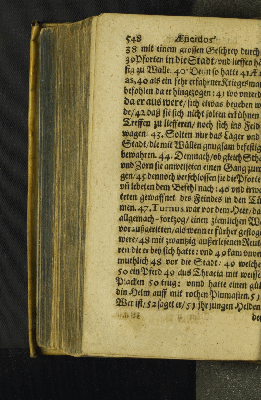 548 Æneidos
38 mit einem grossen Geschrey durch
39 Pforten in die Stadt/ und lieffen hä
fig zu Walle. 40 Denn so hatte 41 Æn
as, 40 als ein sehr erfahrner Krieges man
befohlen da er hingezogen: 41 wo unterd
da er aus were/ sich etwas begeben w
de/ 42 daß sie sich nicht solten erkühnen
Treffen zu lieffern/ noch sich ins Feld
wagen. 43. Solten nur das Läger und
Stadt/ die mit Wällen gnugsam befestig
bewahren. 44. Demnach/ ob gleich Scha
und Zorn sie anweiseten einen Gang zum
gen/ 45 dennoch verschlossen sie die Pforte
uñ leheten dem Befehl nach: 46 und erwa
teten gewaffnet des Feindes in den Tü
men. 47. Turnus war vor dem Heer/ da
allgemach fortzog/ einen ziemlichen W
voraußgeritten/ als wenn er fürher geflog
were/ 48 mit zwantzig außerlesenen Reut
ren die er bey sich hatte: und 49 kam unver
muthlich 48 vor die Stadt: 49 welche
50 ein Pferd 49 aus Thracia mit weisse
Placken 50 trug: unnd hatte einen gül
din Helm auff mit rothen Plumasien. 51
Wer ist/ 52 saget er/ 51 ihr jungen Helden